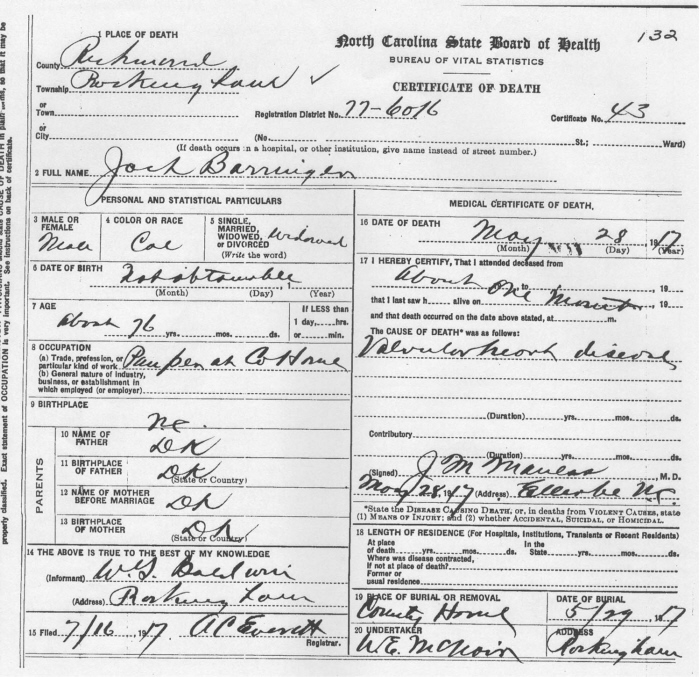 132
North Carolina State Board of Health
BUREAU OF VITAL STATISTICS
CERTIFICATE OF DEATH
1 PLACE OF DEATH
County Richmond
Township Rockingham ✓
or
Town Registration District No. 77-6016 Certificate No. 43
or
City (No. St.; Ward)
(If death occurs in a hospital, or other institution, give name instead of street number.)
2 FULL NAME Jack Barringer
PERSONAL AND STATISTICAL PARTICULARS
3 MALE OR FEMALE Male
4 COLOR OR RACE Col
5 SINGLE, MARRIED, WIDOWED, or DIVORCED Widowed
(Write the word)
6 DATE OF BIRTH Not obtainable, 1
(Month) (Day) (Year)
7 AGE
About 76 yrs. mos. ds.
If LESS than
1 day, hrs.
or min.
8 OCCUPATION
(a) Trade, profession, or particular kind of work Pauper at Co Home
(b) General nature of industry, business, or establishment in which employed (or employer)
9 BIRTHPLACE
N.C.
PARENTS
10 NAME OF FATHER DK
11 BIRTHPLACE OF FATHER DK
(State or Country)
12 NAME OF MOTHER BEFORE MARRIAGE DK
13 BIRTHPLACE OF MOTHER DK
(State or Country)
14 THE ABOVE IS TRUE TO THE BEST OF MY KNOWLEDGE
(Informant) W.S. Baldwin
(Address) Rockingham
15 Filed 7/16 1917 A C Everett
Registrar.
MEDICAL CERTIFICATE OF DEATH.
16 DATE OF DEATH May 28 1917
(Month) (Day) (Year)
17 I HEREBY CERTIFY, That I attended deceased from
About one month, 19 to, 19
that I last saw h alive on, 19
and that death occurred on the date above stated, at m.
The CAUSE OF DEATH* was as follows:
Valvular heart disease
(Duration) yrs. mos. ds.
Contributory
(Duration) yrs. mos. ds.
(Signed) J M Maness M.D.
May 28, 1917 (Address) Ellerbe N.C.
*State the DISEASE CAUSING DEATH, or, in deaths from VIOLENT CAUSES, state
(1) MEANS OF INJURY; and (2) whether ACCIDENTAL, SUICIDAL, or HOMICIDAL.
18 LENGTH OF RESIDENCE (For Hospitals, Institutions, Transients or Recent Residents)
At place of death yrs. mos. ds. In the State yrs. mos. ds.
Where was disease contracted,
if not at place of death?
Former or
usual residence
19 PLACE OF BURIAL OR REMOVAL
County Home
DATE OF BURIAL
5/29, 1917
20 UNDERTAKER
W.E. McNair
ADDRESS
Rockingham
properly classified. Exact statement of OCCUPATION is very important. See instructions on back of certificate.